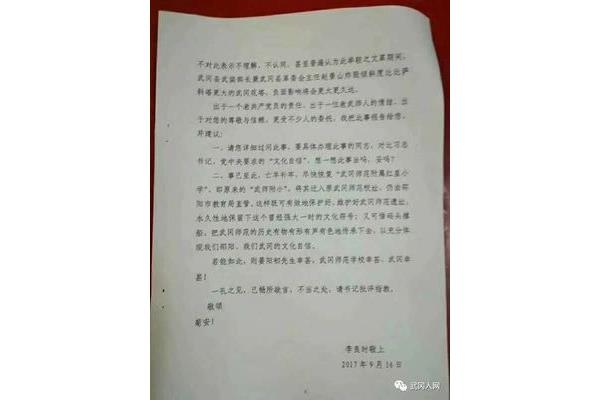 不对此表示不理解、不认同，甚至普遍认为此举较之文革期间，
武冈县武装部长兼武冈县革委会主任赵景山炸毁倾斜度比比萨
斜塔更大的武冈花塔，负面影响将会更大更久远。
出于一个老共产党员的责任，出于一位老武师人的情结，出
于对您的尊敬与信赖，更受不少人的委托，我把此事报告给您，
并建议：
一、请您详细过问此事，要具体办理此事的同志，对比习总
书记、党中央要求的“文化自信”，想一想此事当吗，妥吗？
二、事已至此，亡羊补牢，尽快恢复“武冈师范附属红星小
学”，即原来的“武师附小”，将其迁入原武冈师范校址，仍由邵
阳市教育局直管。这样既可有效地保护好、维护好武冈师范遗址，
永久性地保留下这个曾经强大一时的文化符号；又可借码头撑
船，把武冈师范的历史有物有形有声有色地传承下去，以充分体
现我们邵阳、我们武冈的文化自信。
若能如此，则晏阳初先生幸甚，武冈师范学校幸甚、武冈幸
甚！
一孔之见，已畅所欲言，不当之处，请书记批评指教。
敬颂
勤安！
李良时敬上
2017年9月16日
武冈人网